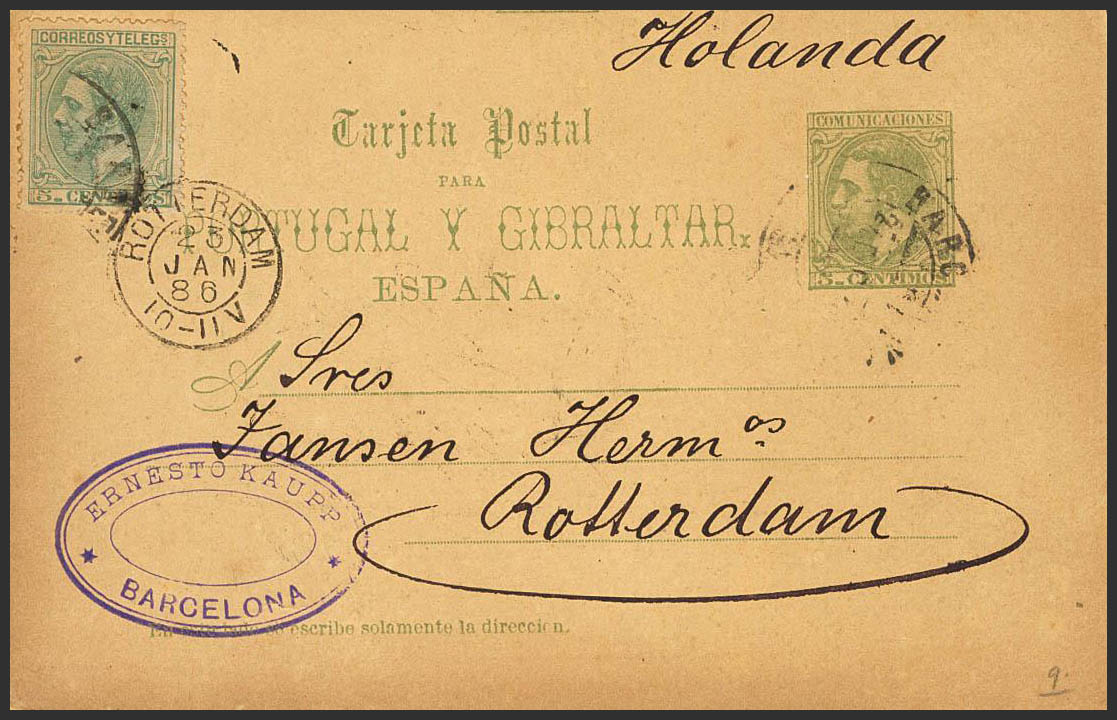 Holanda
CORREOS Y TELEGS
5 CENTIMOS
Tarjeta Postal
PARA
PORTUGAL Y GIBRALTAR.
ESPAÑA.
COMUNICACIONES
5 CENTIMOS
BARC
ROTTERDAM
23
JAN
86
10-11V
A Sres
Jansen Herm os
Rotterdam
ERNESTO KAUPP
BARCELONA
En este lado se escribe solamente la direccion.
9.